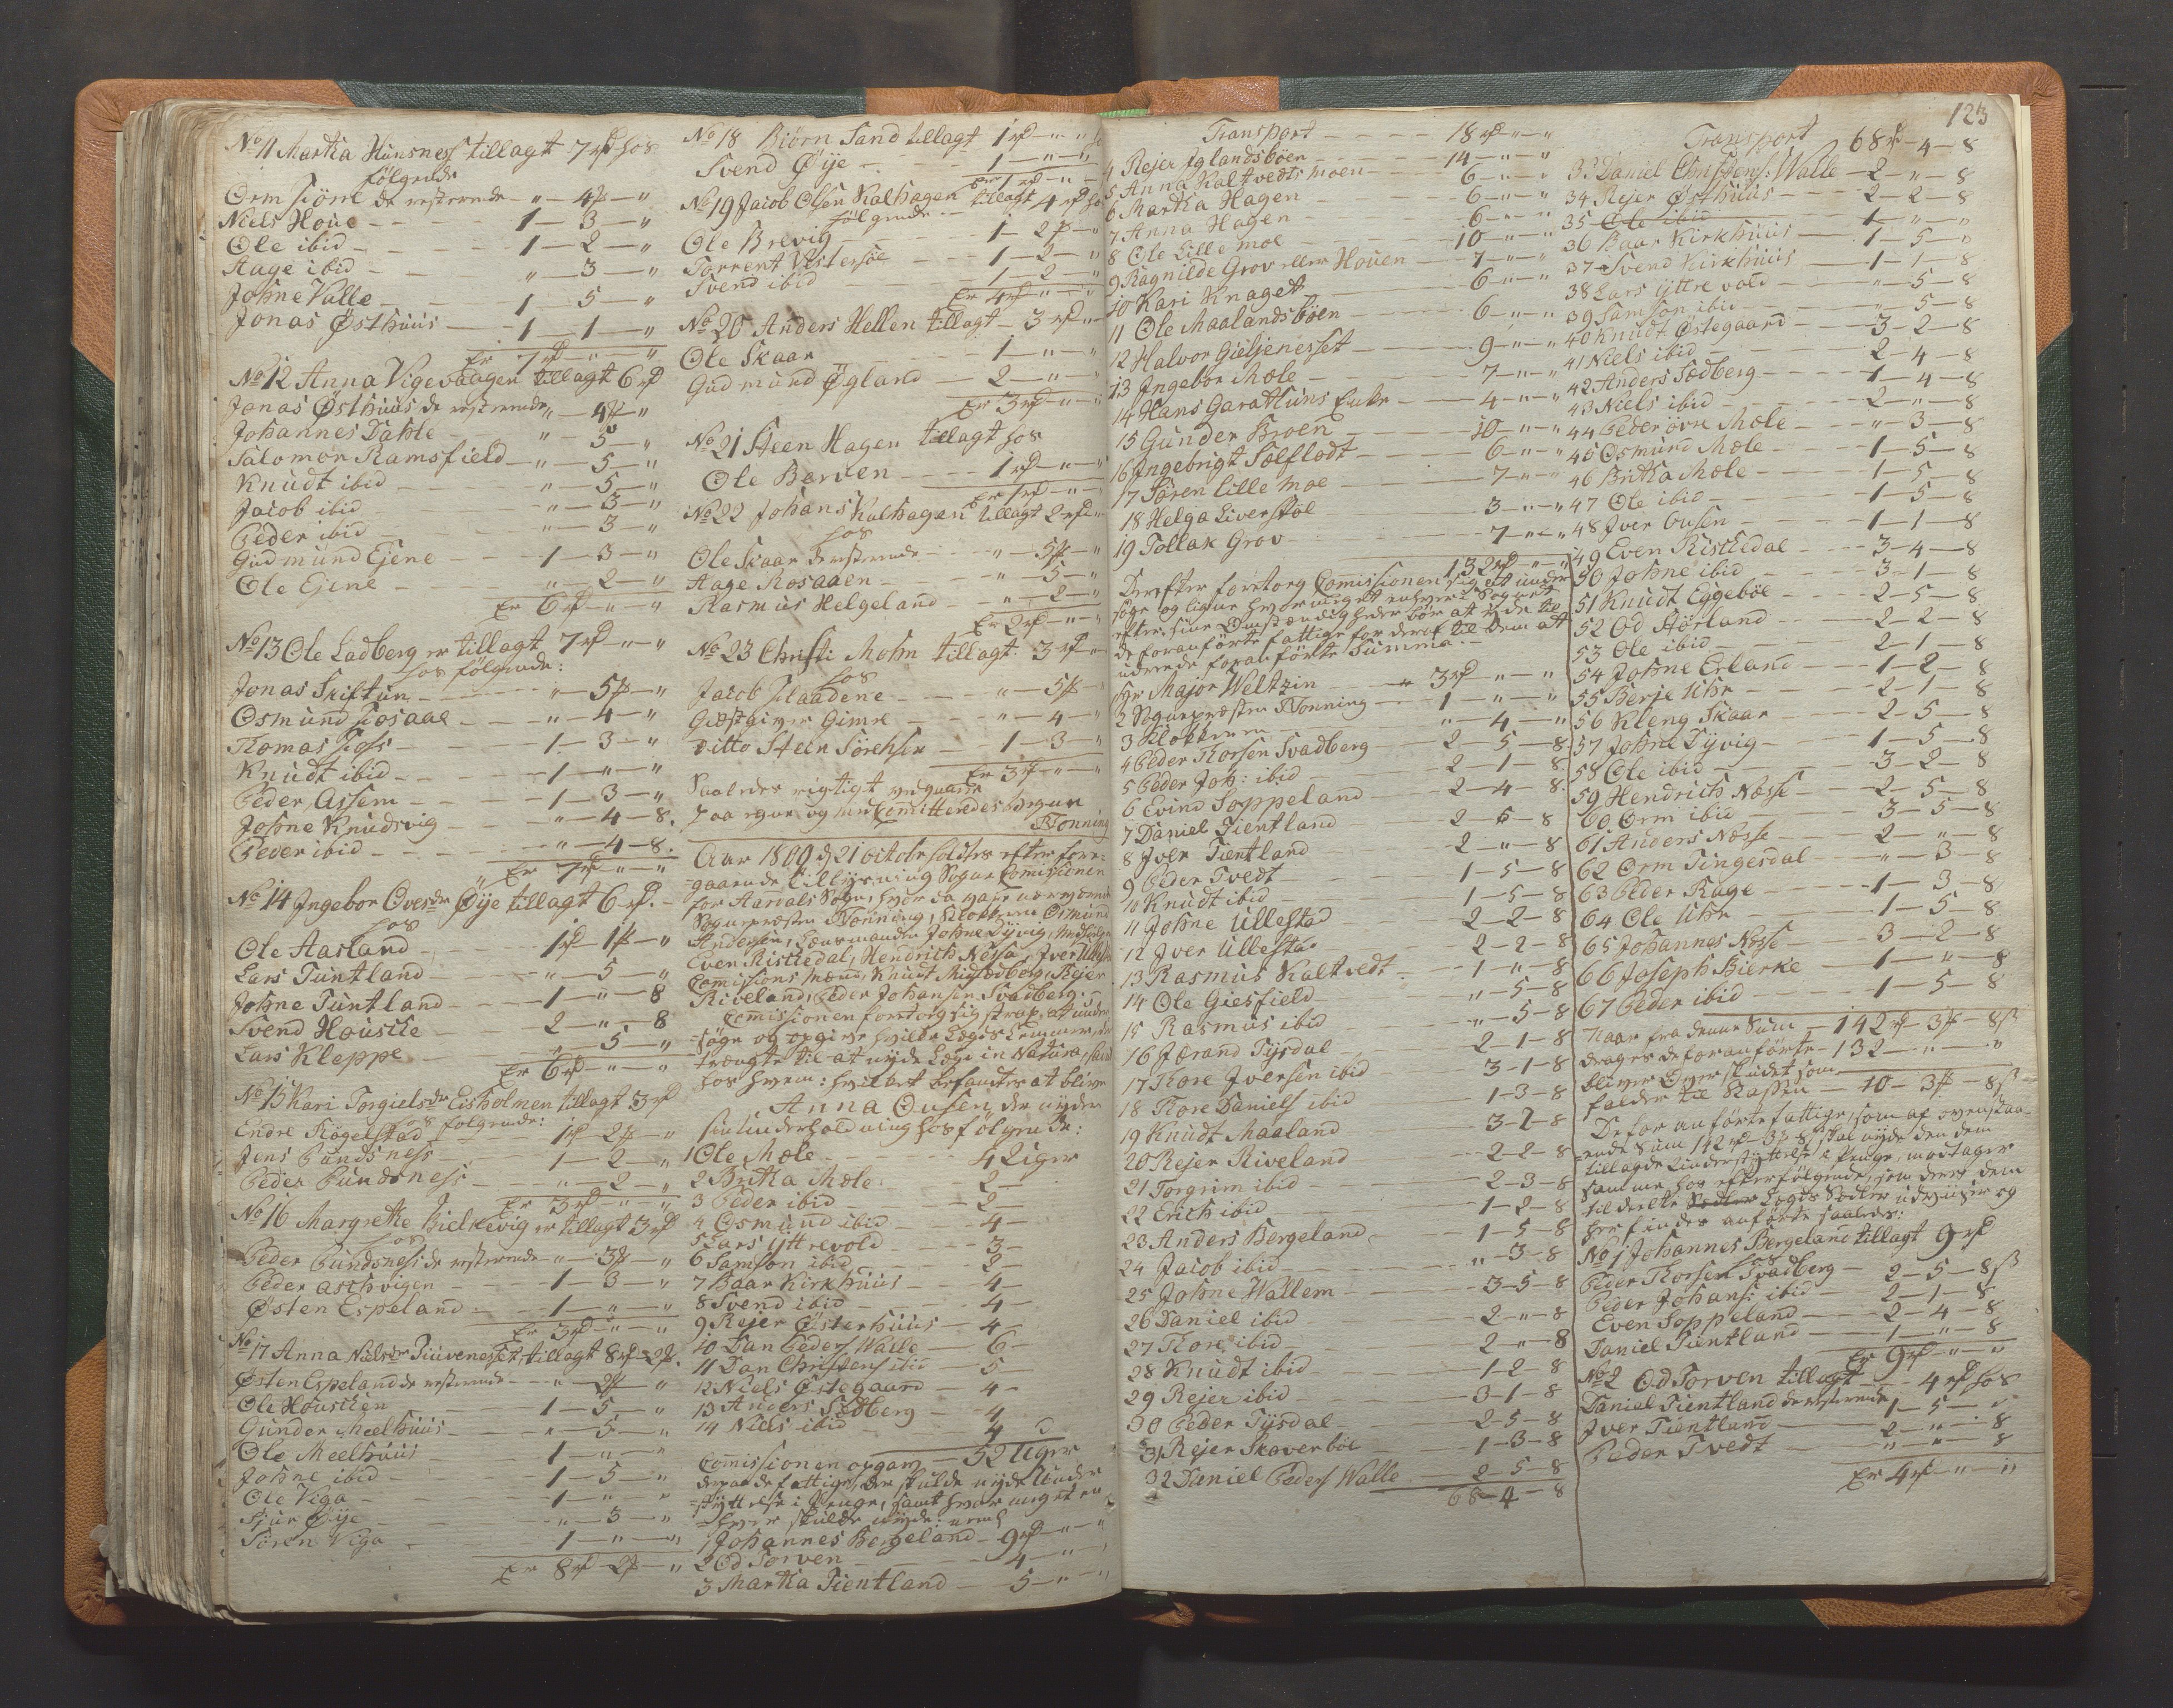 No 11 Martha Hunsness tillagt 7 rd hos
følgende
Orm Fiøre de resterende - " - 4 ß - "
Niels Houe - 1 - 3 - "
Ole ibid - 1 - 2 - "
Aage ibid - " - 3 - "
Johne Valle - 1 - 5 - "
Jonas Østhuus - 1 - 1 - "
Er 7 rd - " - "
No 12 Anna Vigevaagen tillagt 6 rd
Jonas Østhuus de resterende " - 4 ß - "
Johannes Dahle - " - 5 - "
Salomon Ramsfield - " - 5 - "
Knudt ibid - " - 5 - "
Jacob ibid - " - 3 - "
Peder ibid - " - 3 - "
Gudmund Ejene - 1 - 3 - "
Ole Ejene - " - 2 - "
Er 6 rd - " - "
No 13 Ole Ladberg er tillagt 7 rd - " - "
hos følgende:
Jonas Skiftun - " - 5 ß - "
Osmund Fosaae - " - 4 - "
Thomas Foss - 1 - 3 - "
Knudt ibid - 1 - " - "
Peder Assem - 1 - 3 - "
Johne Knudsvig - " - 4 - 8.
Peder ibid - " - 4 - 8.
Er 7 rd - " - "
No 14 Ingebor Oversdr Øije tillagt 6 rd. -
hos
Ole Aarland - 1 rd - 1 ß - "
Lars Tuntland - " - 5 - "
Johne Tuntland - 1 - " - 8
Svend Houske - 2 - " - 8
Lars Kleppe - " - 5 - "
Er 6 rd - " - "
No 15 Kari Torgielsdr Eisholmen tillagt 3 rd
hos følgende:
Endre Røgelstad - 1 rd - 2 ß - "
Jens Pundsness - 1 - 2 - "
Peder Pundsness - " - 2 - "
Er 3 rd - " - "
No 16 Margrethe Hielkevig er tillagt 3 rd
hos
Peder Pundsness de resterende - " - 3 ß - "
Peder Asthvigen - 1 - 3 - "
Østen Espeland - 1 - " - "
Er 3 rd - " - "
No 17 Anna Nielsdr Tiuvenesset, tillagt 8 rd - 2 ß.
Østen Espeland de resterende - " - 2 ß - "
Ole Houschen - 1 - 5 - "
Gunder Meelhuus - " - 5 - "
Ole Meelhuus - 1 - " - "
Johne ibid - 1 - 5 - "
Ole Viga - 1 - " - "
Sjur Øije - " - 3 - "
Søren Viga - 1 - " - "
Er 8 rd - 2 ß - "
No 18 Biørn Sand tillagt 1 rd - " - " hos
Svend Øije - 1 - " - "
Er 1 rd - " -
No 19 Jacob Olsen Kalhagen tillagt 4 rd hos
følgende -
Ole Brevig - 1 - 2 ß - "
Torrent Vestersøe - 1 - 2 - "
Svend ibid - 1 - 2 - "
Er 4 rd - " - "
No 20 Anders Hellen tillagt - 3 rd - "
Ole Skaar - 1 - " - "
Gudmund Øgland - 2 - " - "
Er 3 rd - " - "
No 21 Steen Hagen tillagt hos
Ole Berven - 1 rd - " - "
Er 1 rd - " - "
No 22 Johans Kalhagen tillagt 2 rd - "
hos
Ole Skaar de resterende - " - 5 ß - "
Aage Rosaaen - " - 5 - "
Rasmus Helgeland - " - 2 - "
Er 2 rd - " - "
No 23 Christi Mohn tillagt 3 rd - "
hos
Jacob Flaadene - " - 5 ß - "
Giæstgiver Gimre - " - 4 - "
Ditto Steen Sørensen - 1 - 3 - "
Er 3 rd - " - "
Saaledes rigtigt
paa egne og med Committeredes Vegne
F Tonning
Aar 1800 d 21 Octobr holdtes efter fore-
gaaende Tillysning Sogne Comissionen
for Aardals Sogn, hvor da vare nærværende
Sognepræsten F Tonning, Klokkeren Osmund
Andersen, Lænsmanden Johne Dyvig, Medhielper
Even Riskedal, Hendrich Nessa, Iver Ullestad
Comissions Mænd, Knudt Migsædberg, Rejer
Riveland, Peder Johansen Svadberg.
Comissionen foretog sig strax, at under-
søge og opgive hvilke Lægds Lemmer der
trængte til at nyde Lægd in Natura, samt
hos hvem: hvilket befandtes at blive
Anna Ousen der nyder
sin underholdning hos følgende:
1 Ole Mæle - 4 Uger
2 Britha Mæle - 2 -
3 Peder ibid - 2 -
4 Osmund ibid - 4 -
5 Lars Yttrevold - 3 -
6 Samson ibid - 2 -
7 Baar Kirkhuus - 4 -
8 Svend ibid - 4 -
9 Rejer Østerhuus - 4 -
10 Dan Peders Walle - 6 -
11 Dan Christens ibid - 5 -
12 Niels Østegaard - 4 -
13 Anders Sædberg - 4
14 Niels ibid - 4
- 52 Uger
Comissionen opgav
derpaa de fattige, der skulde nyde Under-
støttelse i Penge, samt hvor meget en-
hver skulde nyde: neml
1 Johannes Bergeland - 9 rd - " - "
2 Od Torven - 4 - " - "
3 Martha Tientland - 5 - " - "
123
Transport - 18 rd - " - "
4 Rejer Iglandsbøen - 14 - " - "
5 Anna Kaltvedtsmoen - 6 - " - "
6 Martha Hagen - 6 - " - "
7 Anna Hagen - 6 - " - "
8 Ole Lille moe - 10 - " - "
9 Ragnilde Grov eller Houen - 7 - " - "
10 Kari Knaget - 6 - " - "
11 Ole Maalandsbøen - 6 - " - "
12 Halvor Gieljenesset - 9 - " - "
13 Ingebor Mæle - 7 - " - "
14 Hans Garathuns Enke - 4 - " - "
15 Gunder Broen - 10 - " - "
16 Ingebrigt Sælflodt - 6 - " - "
17 Søren Lille moe - 7 - " - "
18 Helga Liverstøl - 3 - " - "
19 Tollak Grov - 7 - " - "
132 rd - " - "
Derefter foretog Comissionen sig at under-
søge og ligne hvor meget enhver i Sognet
efter sine Omstændigheder bør at yde til
de foranførte fattige for deraf til dem at
udrede foranførte Summa. -
1 Hr Major Weltzin - " 3 rd - " - "
2 Sognepræsten F Tonning - 1 - " - "
3 Klokkeren - " - 4 - "
4 Peder Thorsen Svadberg - 2 - 5 - 8.
5 Peder Joh: ibid - 2 - 1 - 8.
6 Evind Soppeland - 2 - 4 - 8.
7 Daniel Tientland - 2 - 5 - 8
8 Iver Tientland - 2 - " - 8
9 Peder Tvedt - 1 - 5 - 8
10 Knudt ibid - 1 - 5 - 8
11 Johne Ullestad - 2 - 2 - 8
12 Iver Ullestad - 2 - 2 - 8
13 Rasmus Kaltvedt - 1 - " - 8
14 Ole Giesfield - " - 5 - 8
15 Rasmus ibid - " - 5 - 8
16 Jærand Tysdal - 2 - 1 - 8
17 Thore Iversen ibid - 3 - 1 - 8
18 Thore Daniels ibid - 1 - 3 - 8
19 Knudt Maaland - 3 - 2 - 8
20 Rejer Riveland - 2 - 2 - 8
21 Torgrim ibid - 2 - 3 - 8
22 Erich ibid - 1 - 2 - 8
23 Anders Bergeland - 1 - 5 - 8
24 Jacob ibid - " - 3 - 8
25 Johne Wallem - 3 - 5 - 8
26 Daniel ibid - 2 - " - 8
27 Thore ibid - 2 - " - 8
28 Knudt ibid - 1 - 2 - 8
29 Rejer ibid - 3 - 1 - 8
30 Peder Tysdal - 2 - 5 - 8
31 Rejer Skoverbøe - 1 - 3 - 8
32 Daniel Peders Walle - 2 - 5 - 8
68 - 4 - 8
Transport 68 rd - 4 - 8
33 Daniel Christens: Walle - 2 - " - 8
34 Rejer Østhuus - 2 - 2 - 8
35 Ole ibid - 1 - " - "
36 Baar Kirkhuus - 1 - 5 - "
37 Svend Kirkhuus - 1 - 1 - 8
38 Lars Yttre vold - " - 5 - 8
39 Samson ibid - " - 5 - 8
40 Knudt Østegaard - 3 - 2 - 8
41 Niels ibid - 2 - 4 - 8
42 Anders Sædberg - 1 - 4 - 8
43 Niels ibid - 2 - " - 8
44 Peder øvre Mæle - " - 3 - 8
45 Osmund Mæle - 1 - 5 - 8
46 Britha Mæle - 1 - 5 - 8
47 Ole ibid - 1 - 5 - 8
48 Iver Ousen - 1 - 1 - 8
49 Even Riskedal - 3 - 4 - 8
50 Johne ibid - 3 - 1 - 8
51 Knudt Eggebøe - 2 - 5 - 8
52 Od Hørland - 2 - 2 - 8
53 Ole ibid - 2 - 1 - 8
54 Johne Erland - 1 - 2 - 8
55 Berje Uhr - 2 - 1 - 8
56 Kleng Skaar - 2 - 5 - 8
57 Johne Dyvig - 1 - 5 - 8
58 Ole ibid - 3 - 2 - 8
59 Hendrich Næsse - 2 - 5 - 8
60 Orm ibid - 3 - 5 - 8
61 Anders Næsse - 2 - " - 8
62 Orm Tingesdal - " - 3 - 8
63 Peder Rage - 1 - 3 - 8
64 Ole Uhr - 1 - 5 - 8
65 Johannes Næsse - 3 - 2 - 8
66 Joseph Bierke - 1 - " - 8
67 Peder ibid - 1 - 5 - 8
Naar fra denne Sum - 142 rd - 3 ß - 8 ß
drages de foranførte - 132 - " - "
bliver Overskudet som
falder til Kassen - 10 - 3 ß - 8 ß
De foranførte fattige, som af ovenstaa-
ende Sum 142 rd - 3 ß 8 skal nyde den dem
tillagde Understøttelse i Penge, modtager
samme hos efterfølgende, som deres dem
tildeelte Sedler Lægds Sedler udviiser og
her findes anførte saaledes:
No 1 Johannes Bergeland tillagt 9 rd
hos
Peder Thorsen Svadberg - 2 - 5 - 8 ß
Peder Johans: ibid - 2 - 1 - 8
Even Soppeland - 2 - 4 - 8
Daniel Tientland - 1 - " - 8
Er 9 rd - " - "
No 2 Od Torven tillagt - 4 rd hos
Daniel Tientland de resterende 1 - 5 - "
Iver Tientland - 2 - " - 8
Peder Tvedt - " - " - 8
Er 4 rd - " - "